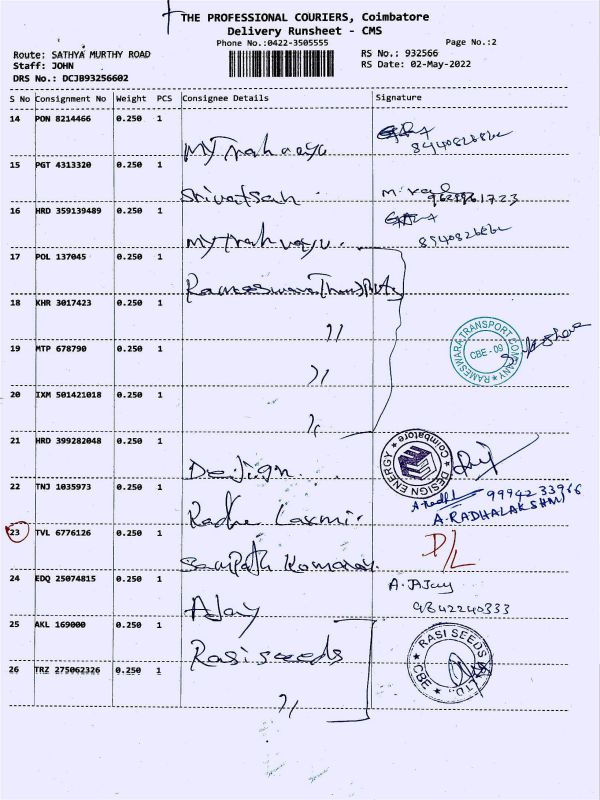 THE PROFESSIONAL COURIERS, Coimbatore
Delivery Runsheet - CMS
Phone No.:0422-3505555
Page No.:2
Route: SATHYA MURTHY ROAD
Staff: JOHN
DRS No.: DCJB93256602
RS No.: 932566
RS Date: 02-May-2022
S No Consignment No Weight PCS Consignee Details Signature
14 PON 8214466 0.250 1
15 PGT 4313320 0.250 1 Shivatsan
16 HRD 359139489 0.250 1
17 POL 137045 0.250 1
18 KHR 3017423 0.250 1 〃
19 MTP 678790 0.250 1 〃
RAMESWARA TRANSPORT COMPANY
CBE - 09
20 IXM 501421018 0.250 1
21 HRD 399282048 0.250 1 Design
DESIGN ENERGY Coimbatore
22 TNJ 1035973 0.250 1 Radhe Laxmi 9994233966
A.RADHALAKSHMI
23 TVL 6776126 0.250 1 Sampath Kumaran D/L
24 EDQ 25074815 0.250 1 AJay A. JAJay
9842240333
25 AKL 169000 0.250 1 Rasi seeds
RASI SEEDS LTD., CBE
26 TRZ 275062326 0.250 1 〃